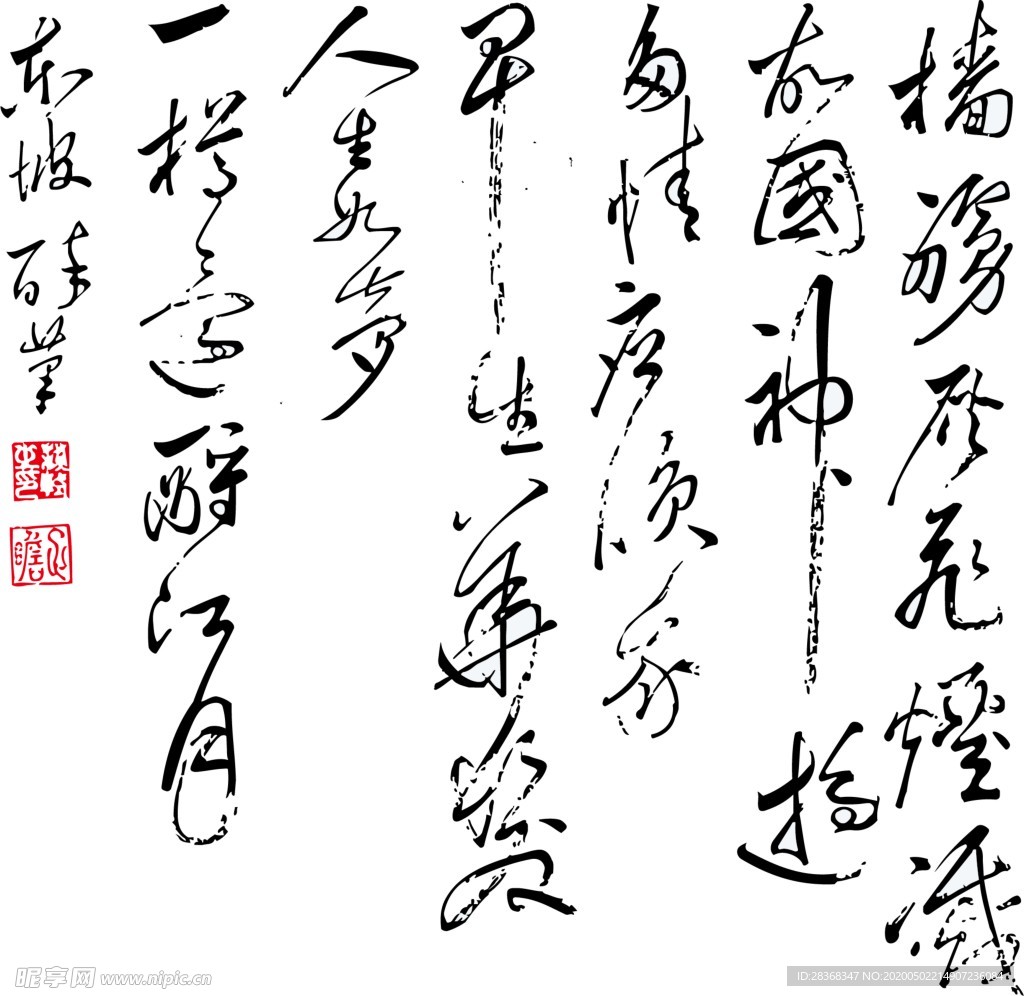 檣艣灰飛煙滅
故國神遊
多情應須我
早生華髮
人生如夢
一樽還酹江月
東坡醉筆
昵享网 www.nipic.cn
ID:28368347 NO:20200502214907236084